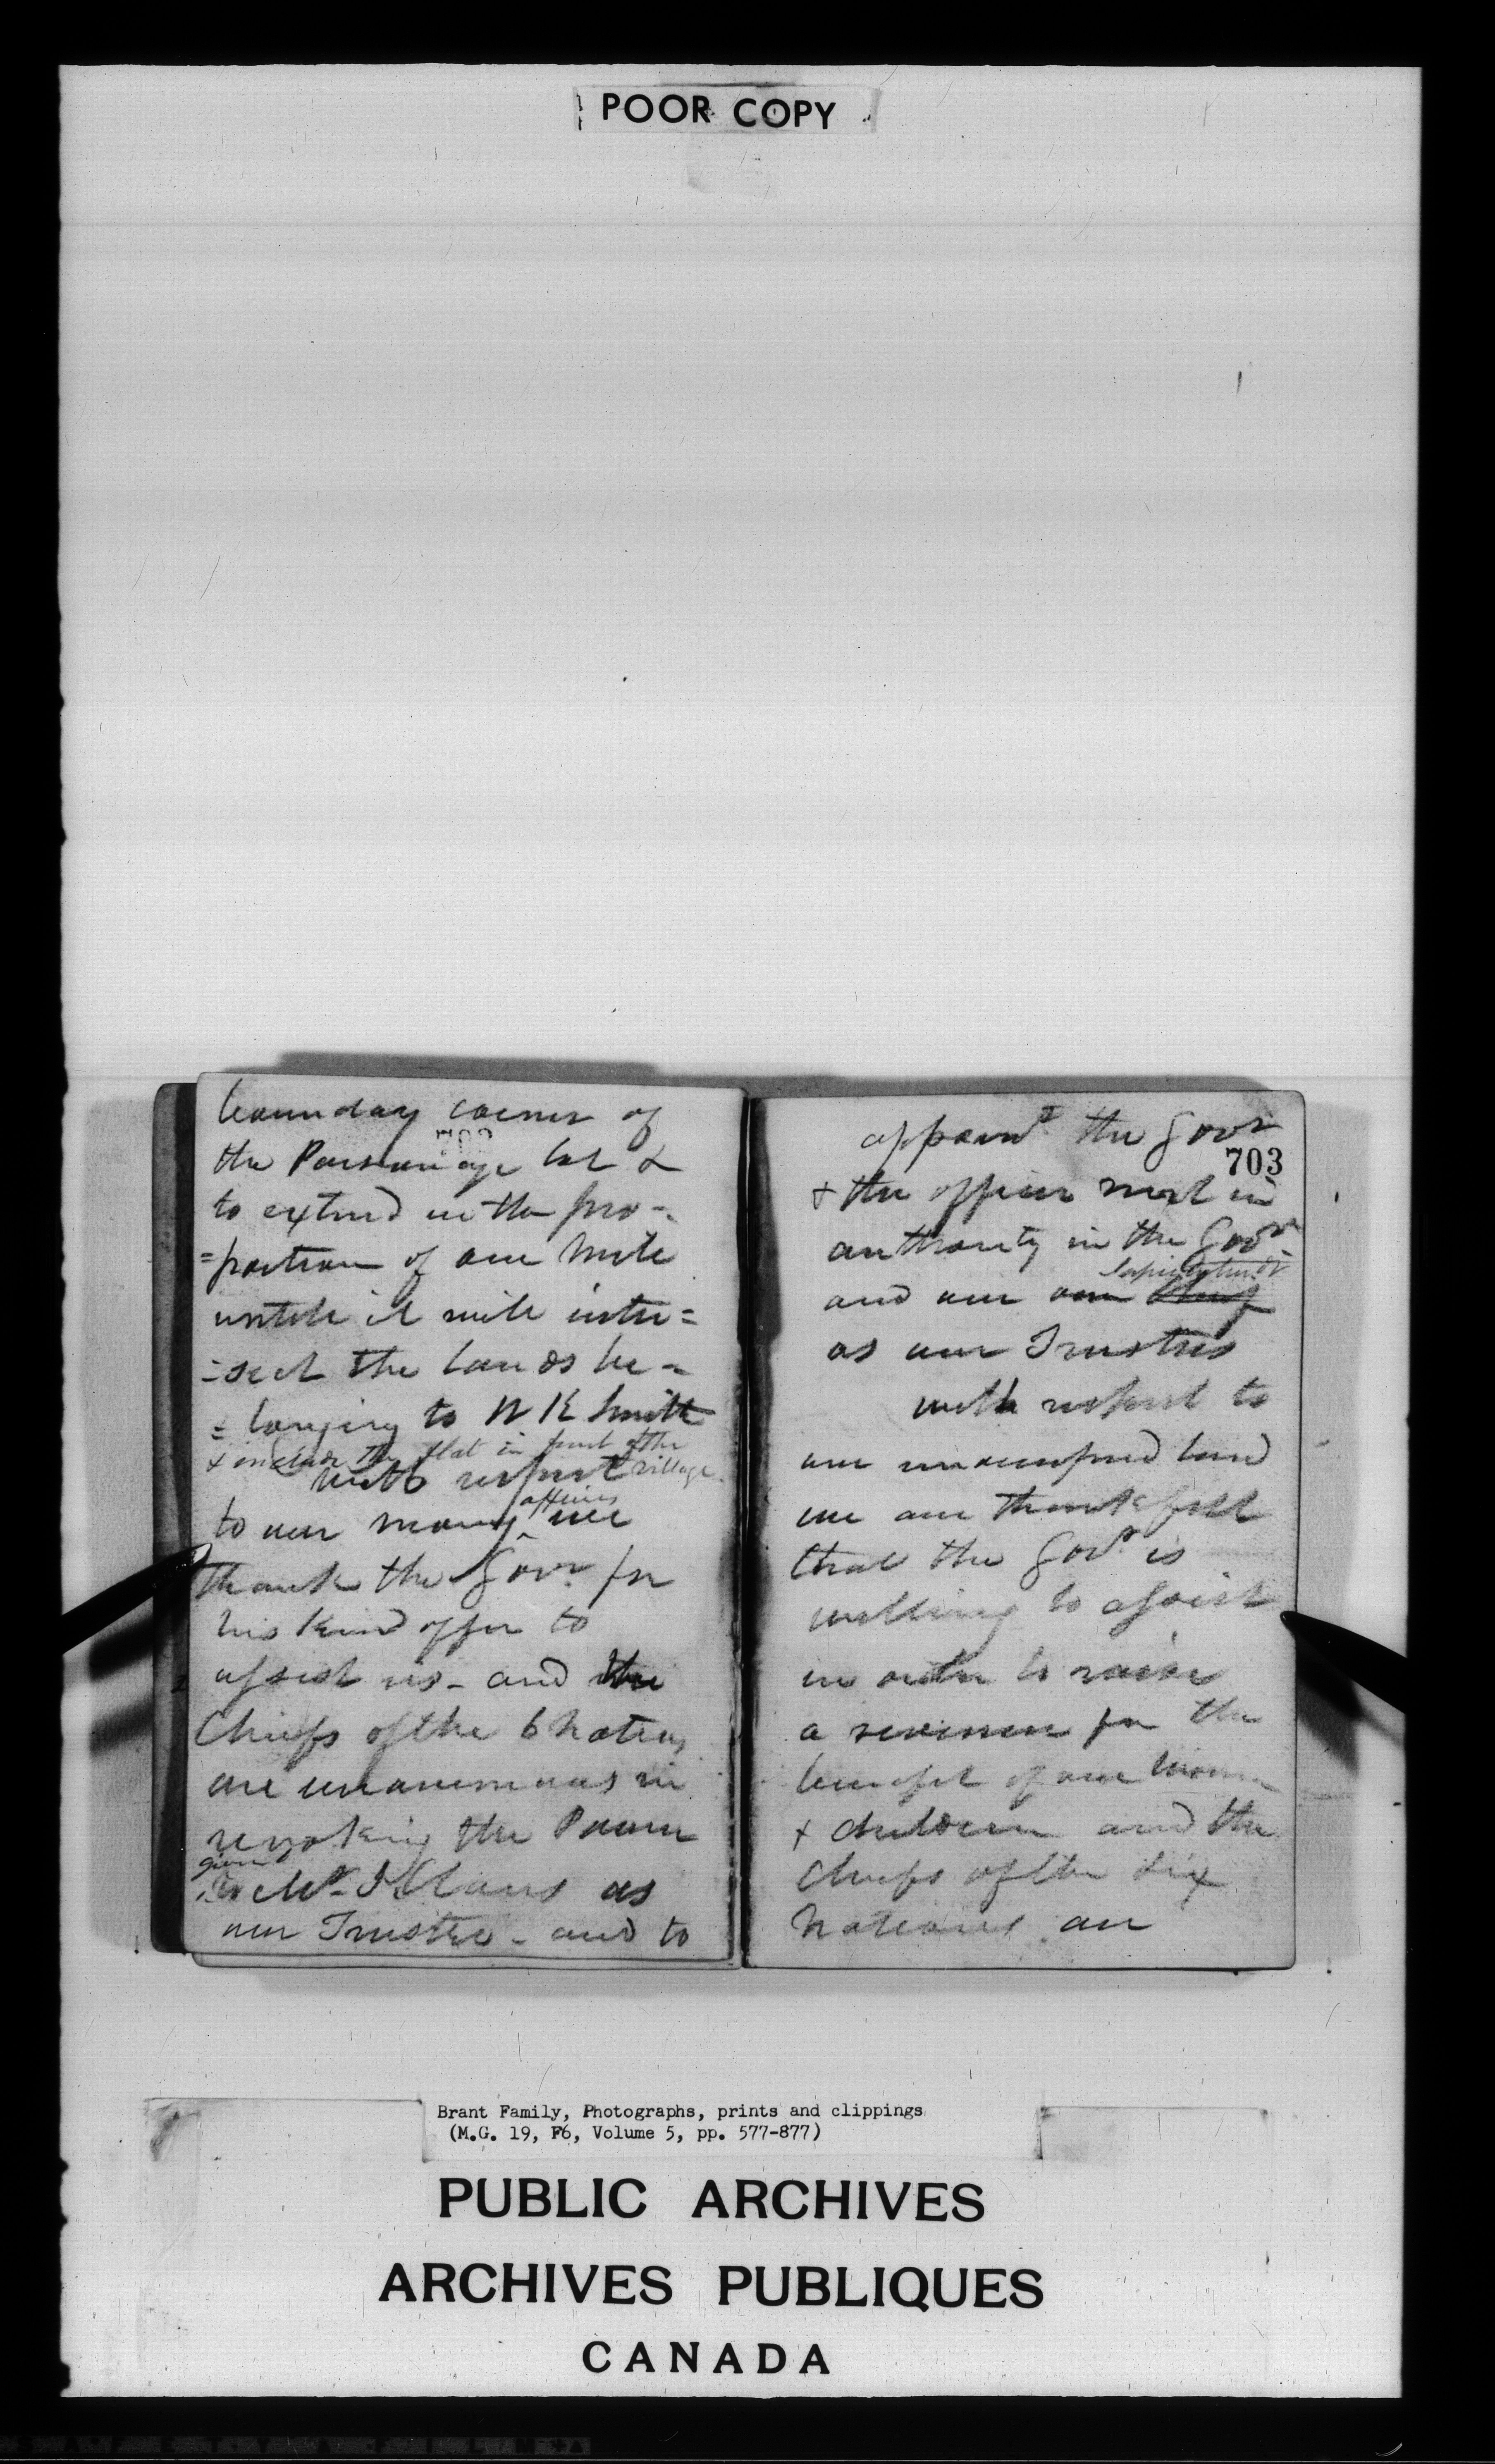 POOR COPY
bounday corner of
the Parsonage lot &
to extend in the pro-
=portion of one mile
untill it will inter=
=sect the lands be-
=longing to W K Smith
& include the flat in front of the village
With respect
to our money affairs we
thank the Govr. for
his kind offer to
assist us - and the
Chiefs of the 6 Nations
are unanimous in
revoking the Power
given
to Mr. J Claus as
our Trustee - and to
appoint the Govr
703
& the officer next in
authority in the Govr
Superintendt
and our own
as our Trustees
with respect to
our unoccupied land
we are thankfull
that the Govr. is
willing to assist
in order to raise
a revenue for the
benefit of our women
& children and the
Chiefs of the Six
Nations are
Brant Family, Photographs, prints and clippings
(M.G. 19, F6, Volume 5, pp. 577-877)
PUBLIC ARCHIVES
ARCHIVES PUBLIQUES
CANADA